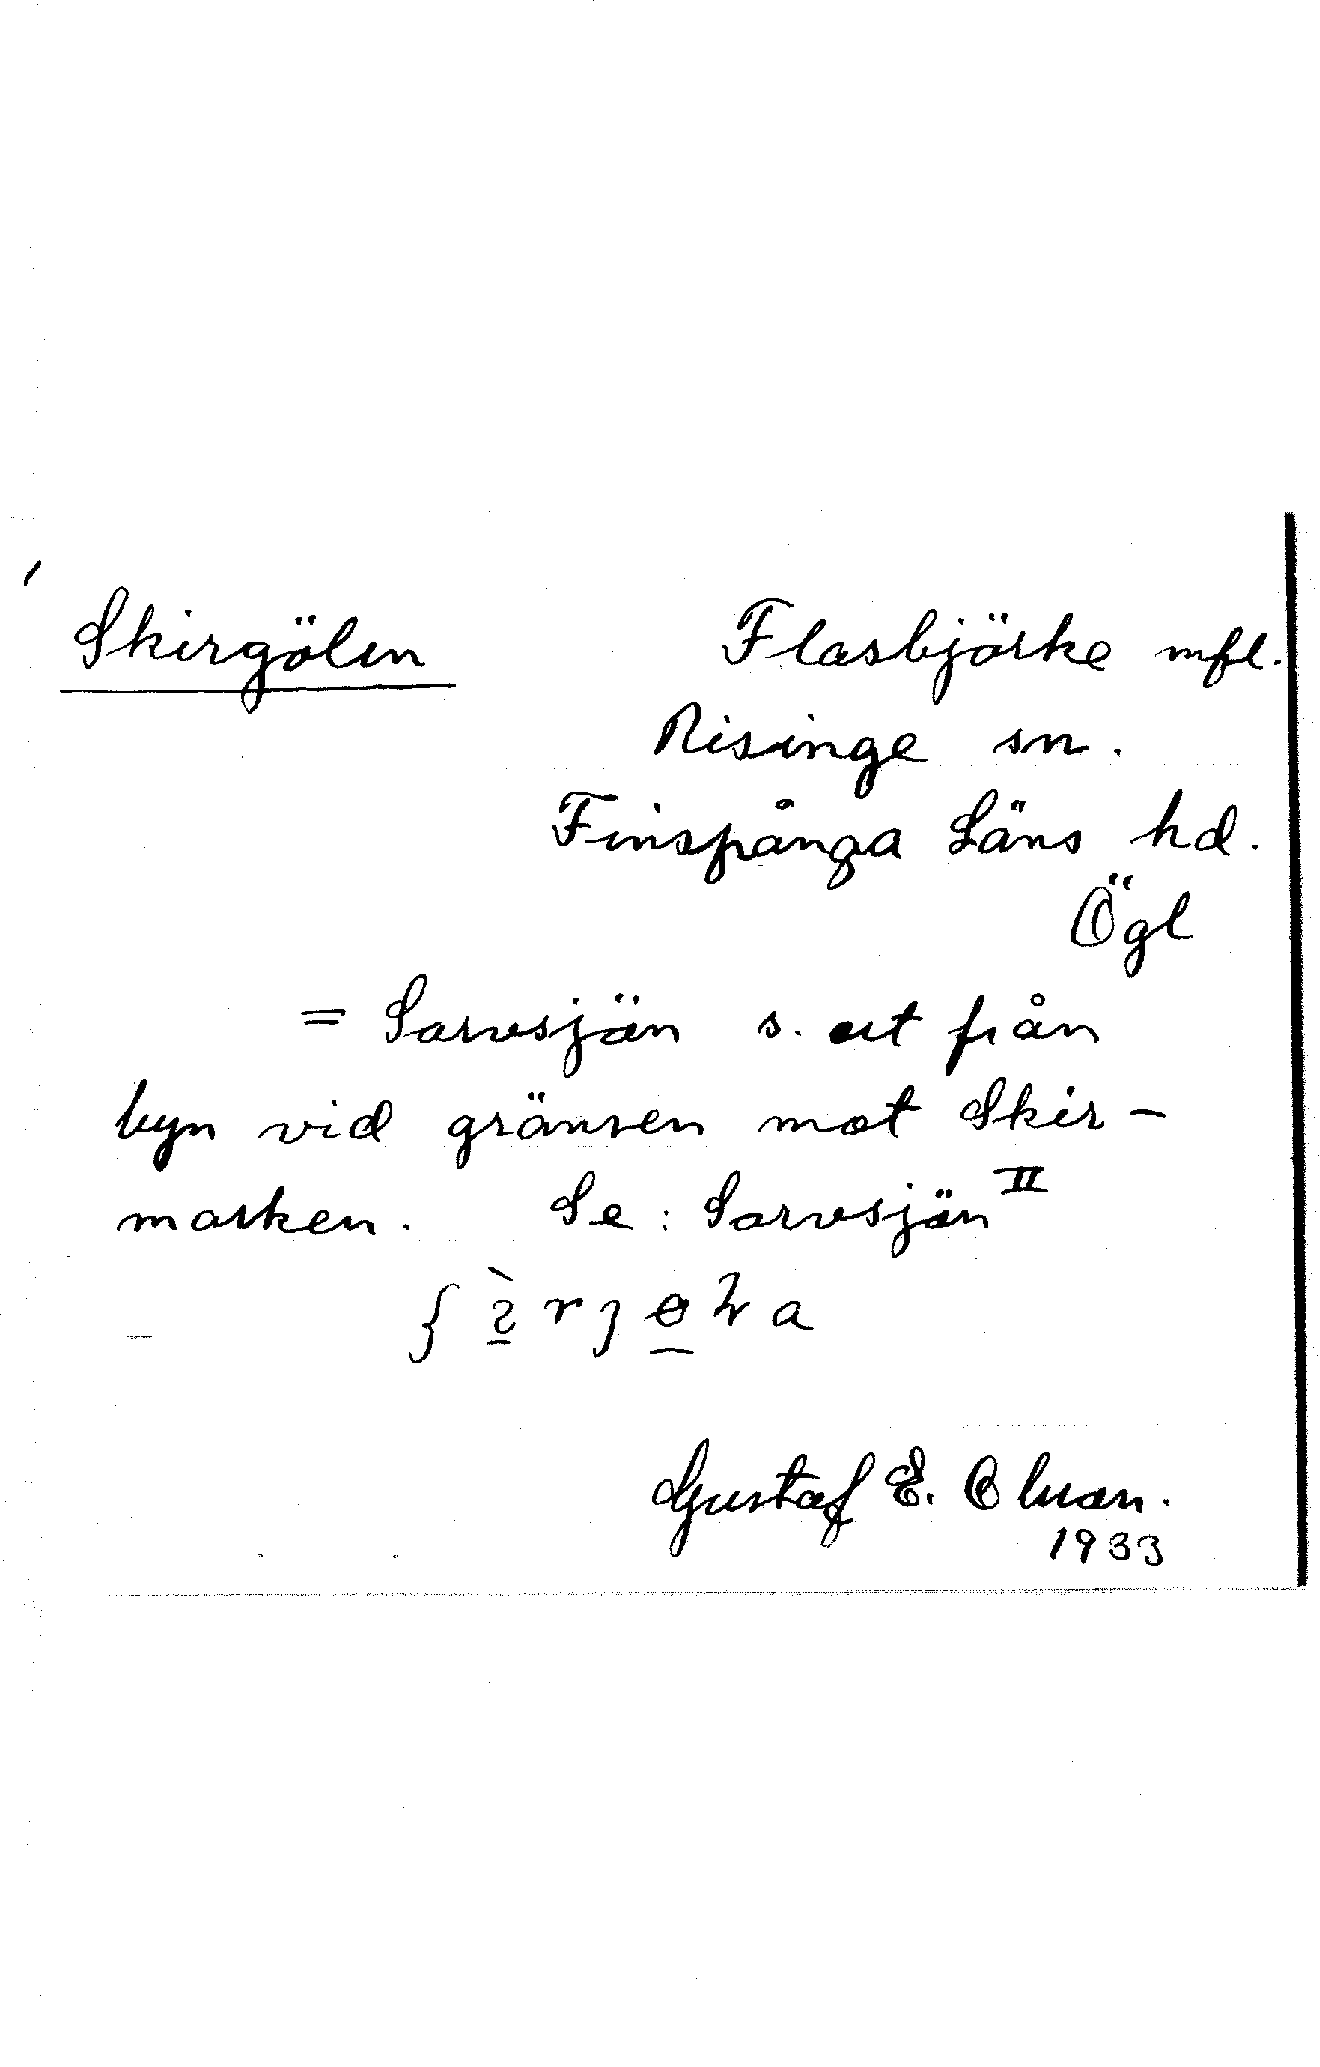 Skirgölen Flasbjörke mfl.
Risinge sn.
Finspånga Läns hd.
Ögl
= Sarvsjön s. ut från
byn vid gränsen mot Skir-
marken. Se: Sarvsjön II
Gustaf E. Olsson.
1933